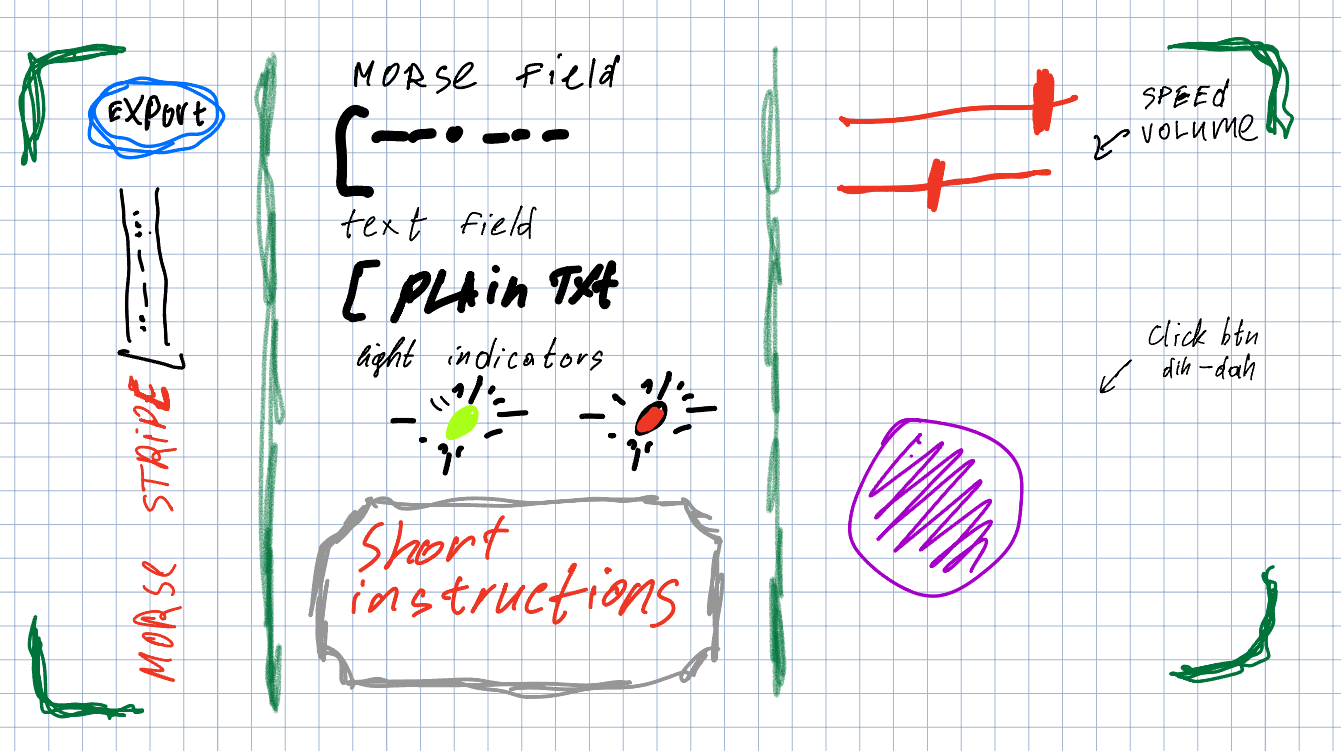 EXPORT
MORSE STRIPE
MORSE Field
text Field
[ PLAin TXt
light indicators
Short
instructions
SPEED
VOLUME
Click btn
dih-dah